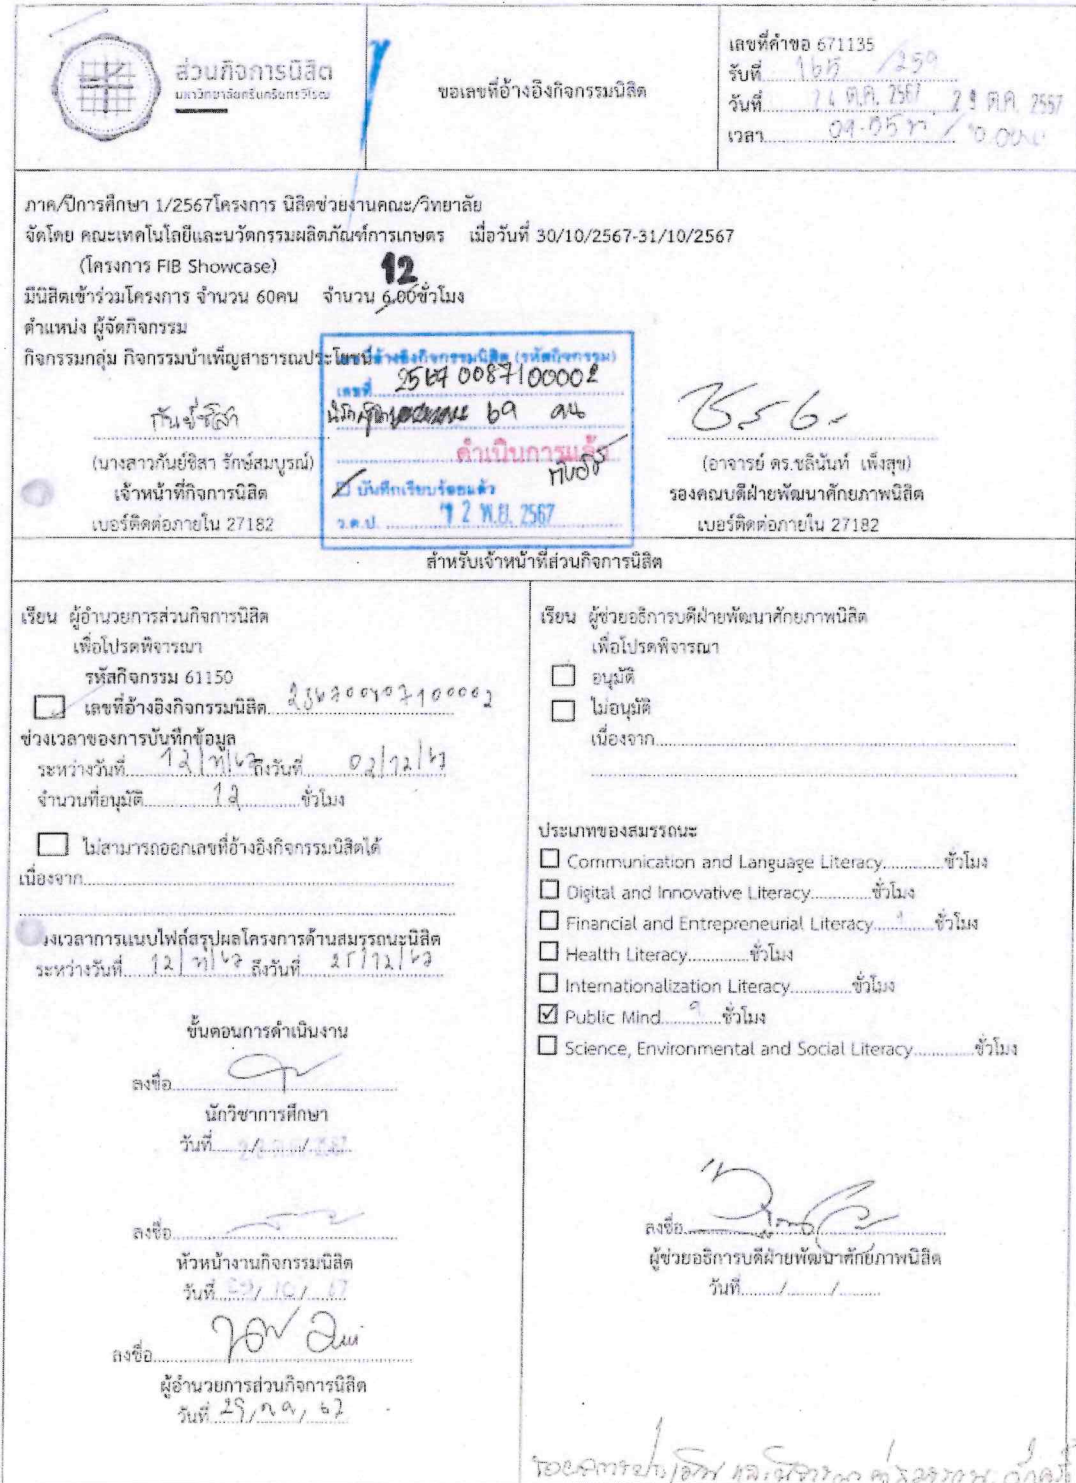 ส่วนกิจการนิสิต
มหาวิทยาลัยศรีนครินทรวิโรฒ
ขอเลขที่อ้างอิงกิจกรรมนิสิต
เลขที่คำขอ 671135
รับที่ 1615 /259
วันที่ 24 ต.ค. 2567 29 ต.ค. 2567
เวลา
ภาค/ปีการศึกษา 1/2567โครงการ นิสิตช่วยงานคณะ/วิทยาลัย
จัดโดย คณะเทคโนโลยีและนวัตกรรมผลิตภัณฑ์การเกษตร เมื่อวันที่ 30/10/2567-31/10/2567
(โครงการ FIB Showcase)
12
มีนิสิตเข้าร่วมโครงการ จำนวน 60คน จำนวน 6.00ชั่วโมง
ตำแหน่ง ผู้จัดกิจกรรม
กิจกรรมกลุ่ม กิจกรรมบำเพ็ญสาธารณประโยชน์
เลขที่อ้างอิงกิจกรรมนิสิต (รหัสกิจกรรม)
เลขที่ 2567 0087100002
69 คน
ดำเนินการแล้ว
บันทึกเรียบร้อยแล้ว
ว.ด.ป. 12 พ.ย. 2567
กันย์ชิสา
(นางสาวกันย์ชิสา รักษ์สมบูรณ์)
เจ้าหน้าที่กิจการนิสิต
เบอร์ติดต่อภายใน 27182
(อาจารย์ ดร.ชลินันท์ เพ็งสุข)
รองคณบดีฝ่ายพัฒนาศักยภาพนิสิต
เบอร์ติดต่อภายใน 27182
สำหรับเจ้าหน้าที่ส่วนกิจการนิสิต
เรียน ผู้อำนวยการส่วนกิจการนิสิต
เพื่อโปรดพิจารณา
รหัสกิจกรรม 61150
เลขที่อ้างอิงกิจกรรมนิสิต 25670087100002
ช่วงเวลาของการบันทึกข้อมูล
ระหว่างวันที่ 12/11/67 ถึงวันที่ 02/12/67
จำนวนที่อนุมัติ 12 ชั่วโมง
ไม่สามารถออกเลขที่อ้างอิงกิจกรรมนิสิตได้
เนื่องจาก
งเวลาการแนบไฟล์สรุปผลโครงการด้านสมรรถนะนิสิต
ระหว่างวันที่ 12/11/67 ถึงวันที่ 25/12/67
ขั้นตอนการดำเนินงาน
ลงชื่อ
นักวิชาการศึกษา
วันที่
ลงชื่อ
หัวหน้างานกิจกรรมนิสิต
วันที่ 29/10/67
ลงชื่อ
ผู้อำนวยการส่วนกิจการนิสิต
วันที่ 29/ต.ค./67
เรียน ผู้ช่วยอธิการบดีฝ่ายพัฒนาศักยภาพนิสิต
เพื่อโปรดพิจารณา
อนุมัติ
ไม่อนุมัติ
เนื่องจาก
ประเภทของสมรรถนะ
Communication and Language Literacy ชั่วโมง
Digital and Innovative Literacy ชั่วโมง
Financial and Entrepreneurial Literacy ชั่วโมง
Health Literacy ชั่วโมง
Internationalization Literacy ชั่วโมง
Public Mind ชั่วโมง
Science, Environmental and Social Literacy ชั่วโมง
ลงชื่อ
ผู้ช่วยอธิการบดีฝ่ายพัฒนาศักยภาพนิสิต
วันที่ / /